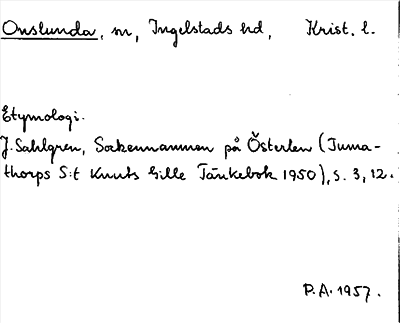 Onslunda, sn, Ingelstads hd, Krist. l.
Etymologi.
J. Sahlgren, Sockennamnen på Österlen (Tuma-
thorps S:t Knuts Gille Tänkebok 1950), s. 3, 12.
P.A. 1957.